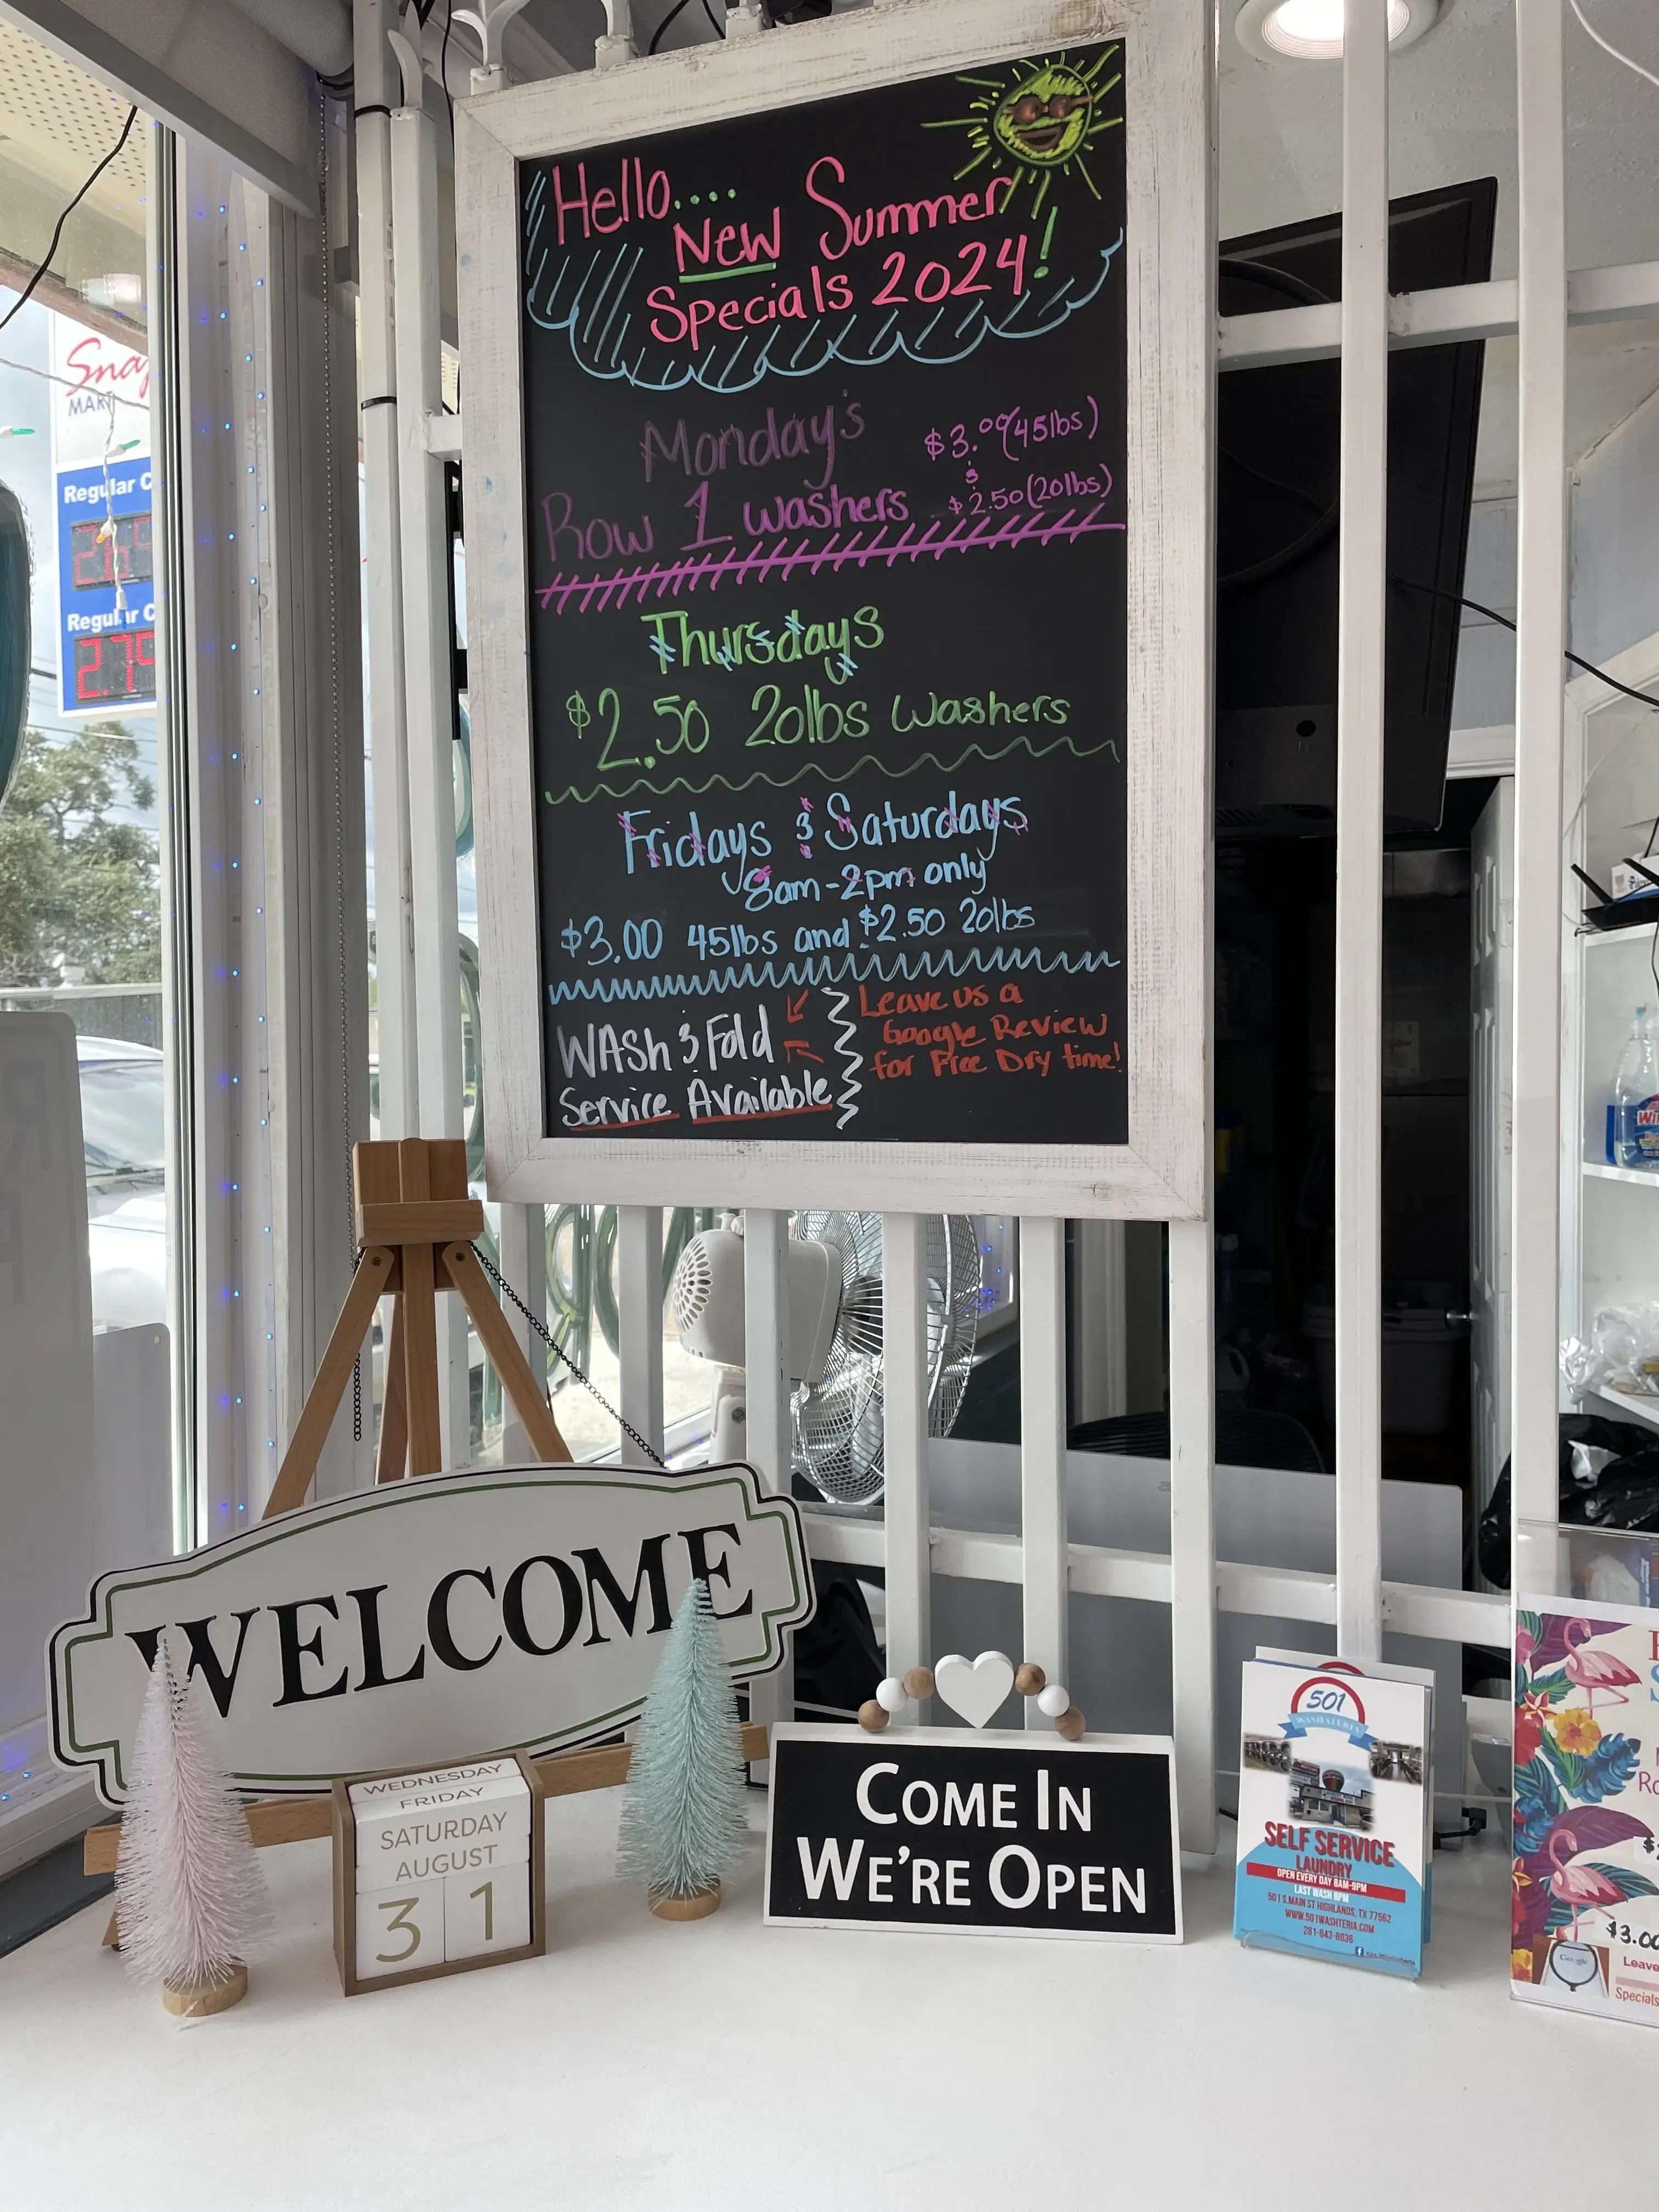 Hello....
New Summer
Specials 2024!
Monday's
$3.00 (45lbs)
&
$2.50 (20lbs)
Row 1 washers
Thursdays
$2.50 20lbs Washers
Fridays & Saturdays
8am-2pm only
$3.00 45lbs and $2.50 20lbs
WASh & Fold
Service Available
Leave us a
Google Review
for Free Dry time!
Snap
MART
Regular C
Regular C
2.79
WELCOME
WEDNESDAY
FRIDAY
SATURDAY
AUGUST
31
COME IN
WE'RE OPEN
501
WASHATERIA
SELF SERVICE
LAUNDRY
OPEN EVERY DAY 8AM-9PM
LAST WASH 8PM
501 S.MAIN ST HIGHLANDS, TX 77562
WWW.501WASHTERIA.COM
281-843-8036
$3.00
Google
Leave
Specials